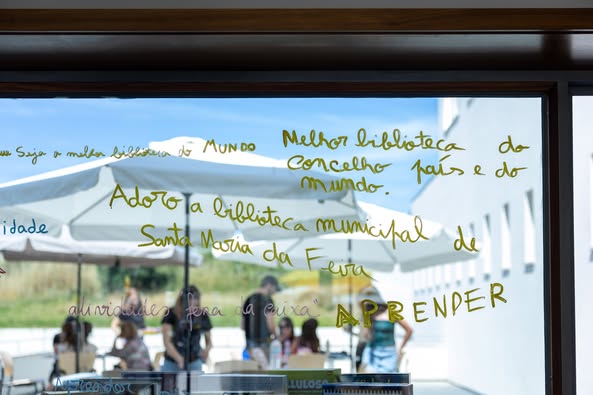 Seja a melhor biblioteca do MUNDO
Melhor biblioteca do
concelho país e do
mundo.
Adoro a biblioteca municipal de
Santa Maria da Feira
idade
atividades "fora da caixa"
APRENDER